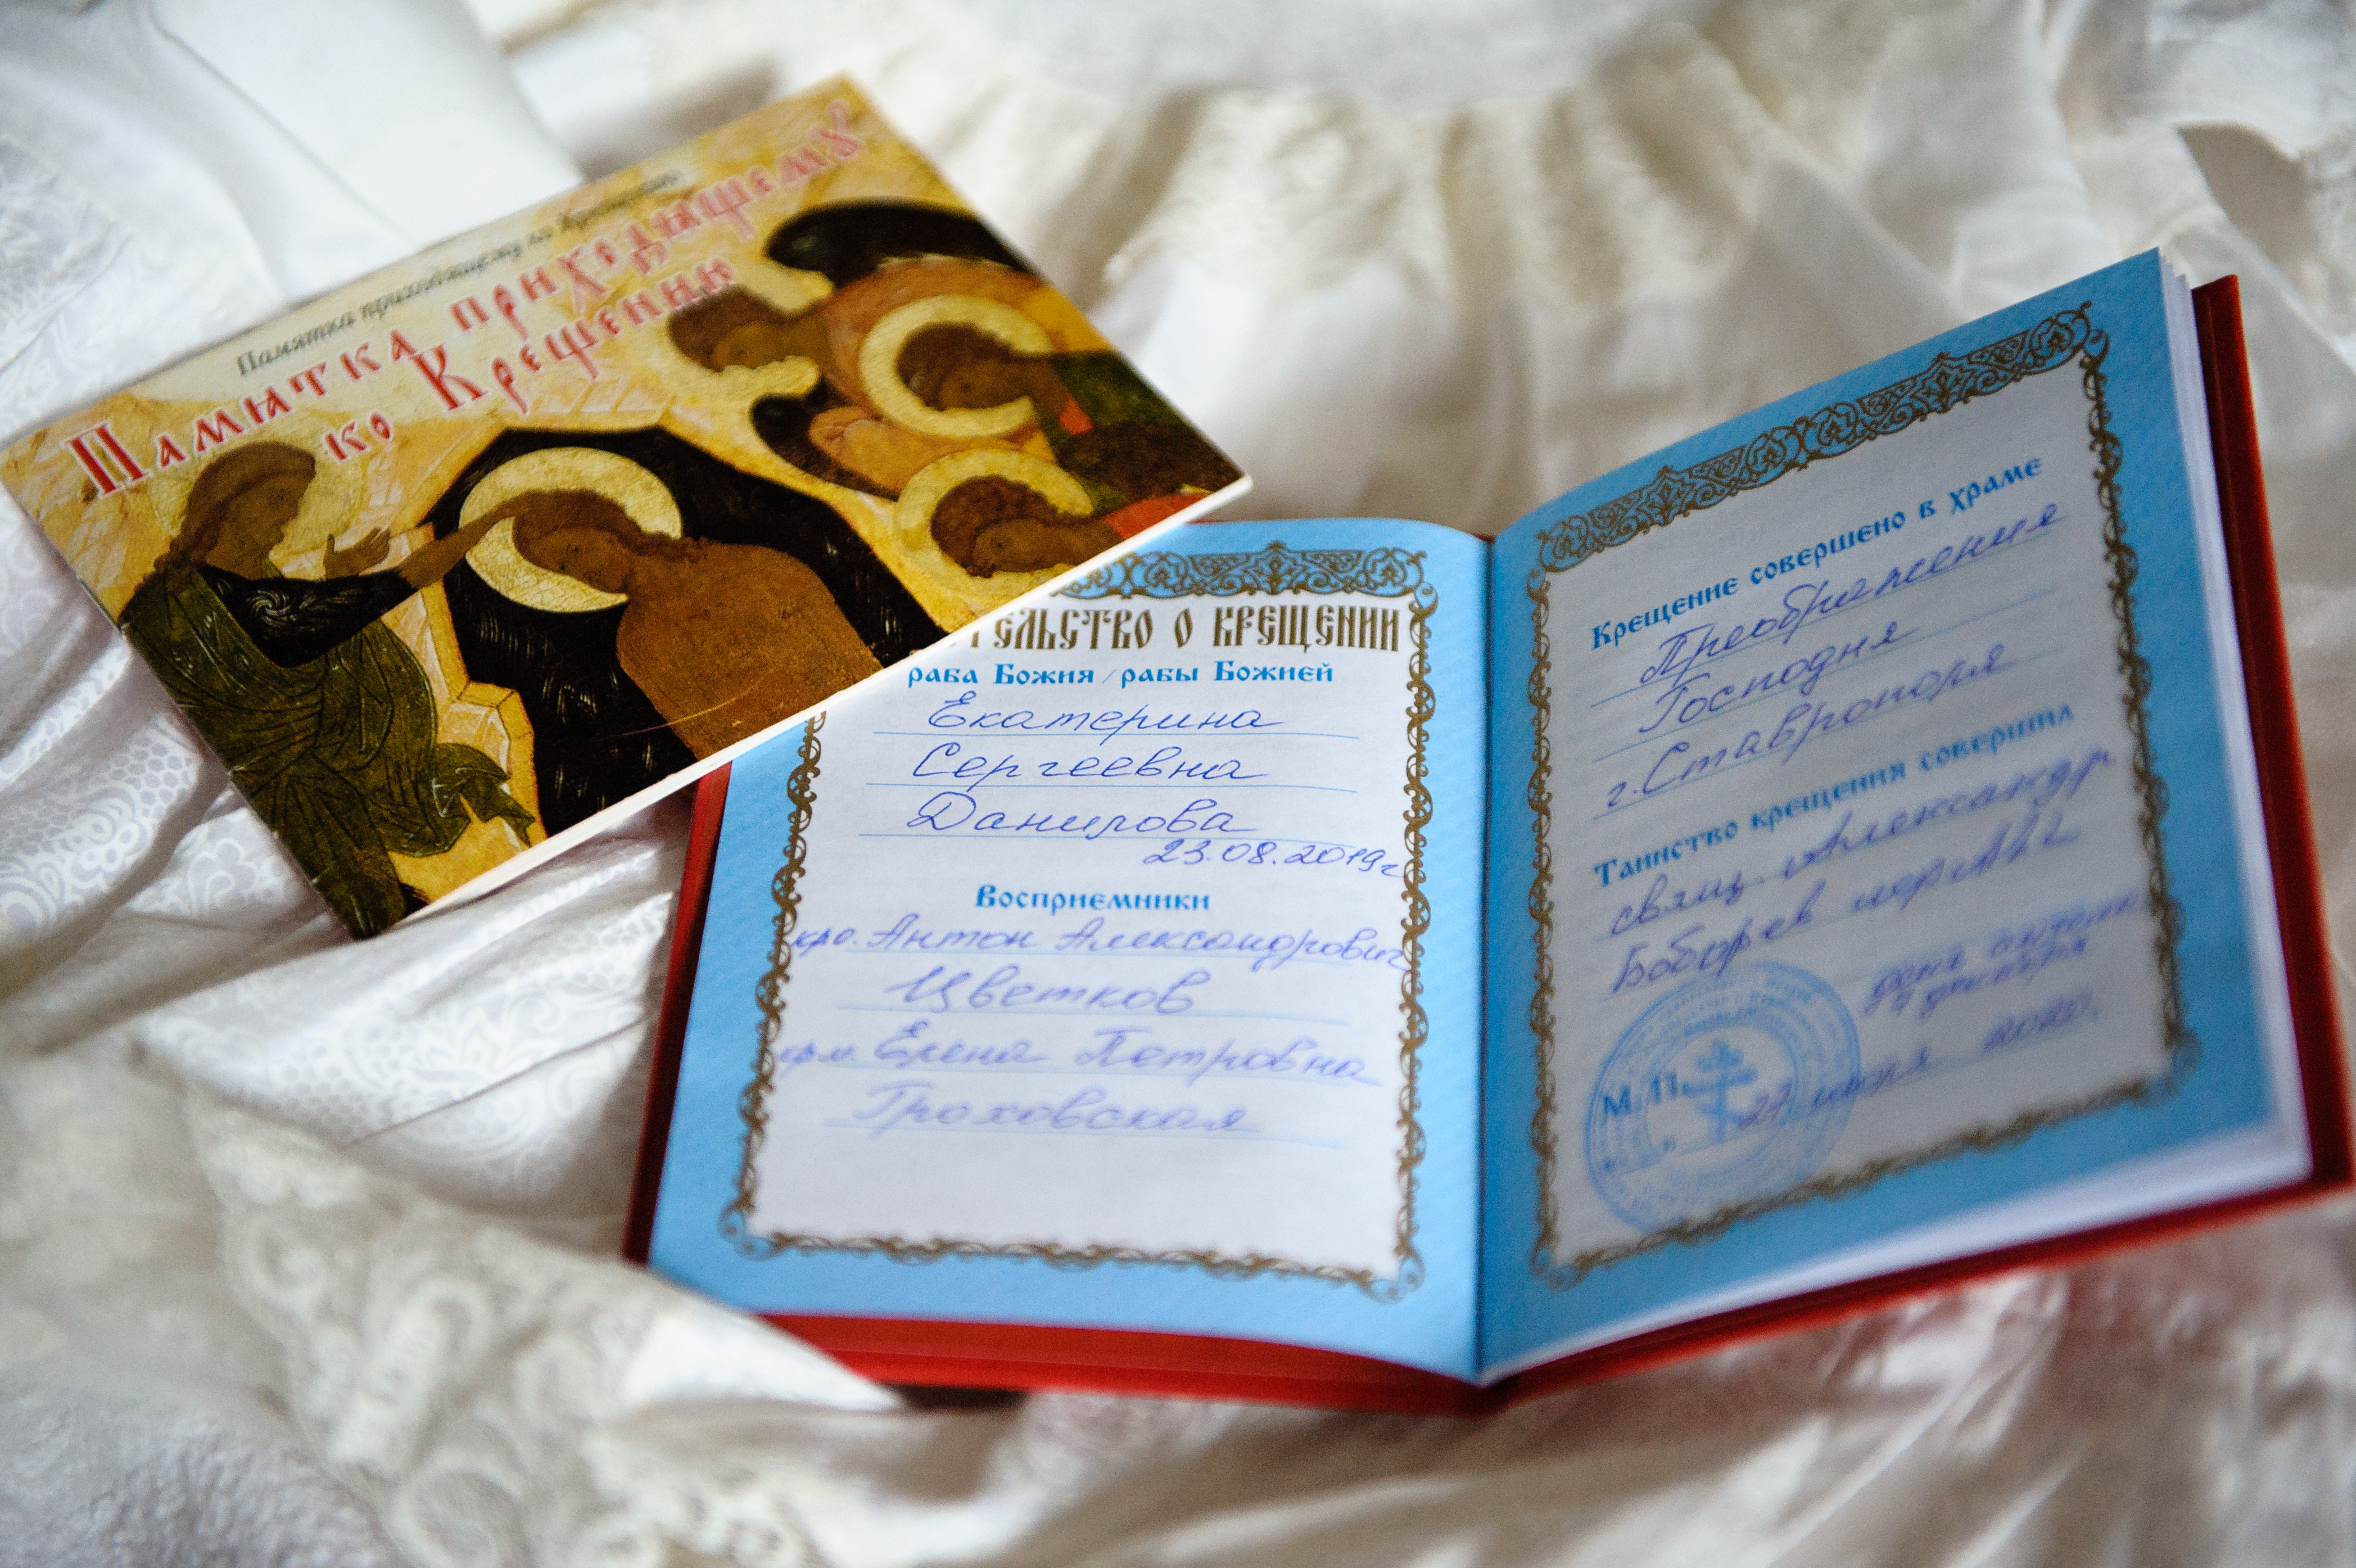 Памятка приходящему ко Крещению
Памятка приходящему
ко Крещению
ТЕЛЬСТВО О КРЕЩЕНИИ
раба Божия / рабы Божией
Екатерина
Сергеевна
Данилова
23.08.2019г
Восприемники
кро. Антон Александрович
Цветков
крм. Елена Петровна
Гроховская
Крещение совершено в храме
Преображения
Господня
г. Ставрополя
Таинство крещения совершил
свящ. Александр
день
7 декабря
М.П.
27 июля 2020.